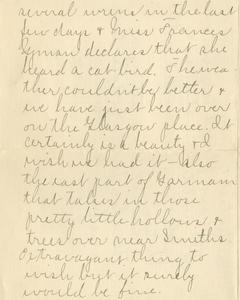 several wrens in the last
few days & Miss Frances
Lyman declares that she
heard a cat bird. The wea-
ther, couldn't be better &
we have just been over
on the Glasgow place. It
certainly is a beauty & I
wish we had it – also
the east part of
that takes in those
pretty little hollows &
trees over near Smiths.
Extravagant thing to
wish but it surely
would be fine.